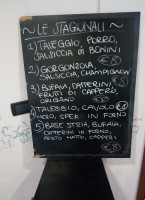 ~ LE STAGIONALI ~
1) TALEGGIO, PORRO,
SALSICCIA DI BONINI
€8
2) GORGONZOLA,
SALSICCIA, CHAMPIGNON
€8
3) BUFALA, DATTERINI
FRUTTI DI CAPPERO,
ORIGANO €8
4) TALEGGIO, CAVOLO €8
NERO, SPEK IN FORNO
5) BASE STRIA, BUFALA,
DATTERINI IN FORNO,
PESTO MATTO, CAPPERI